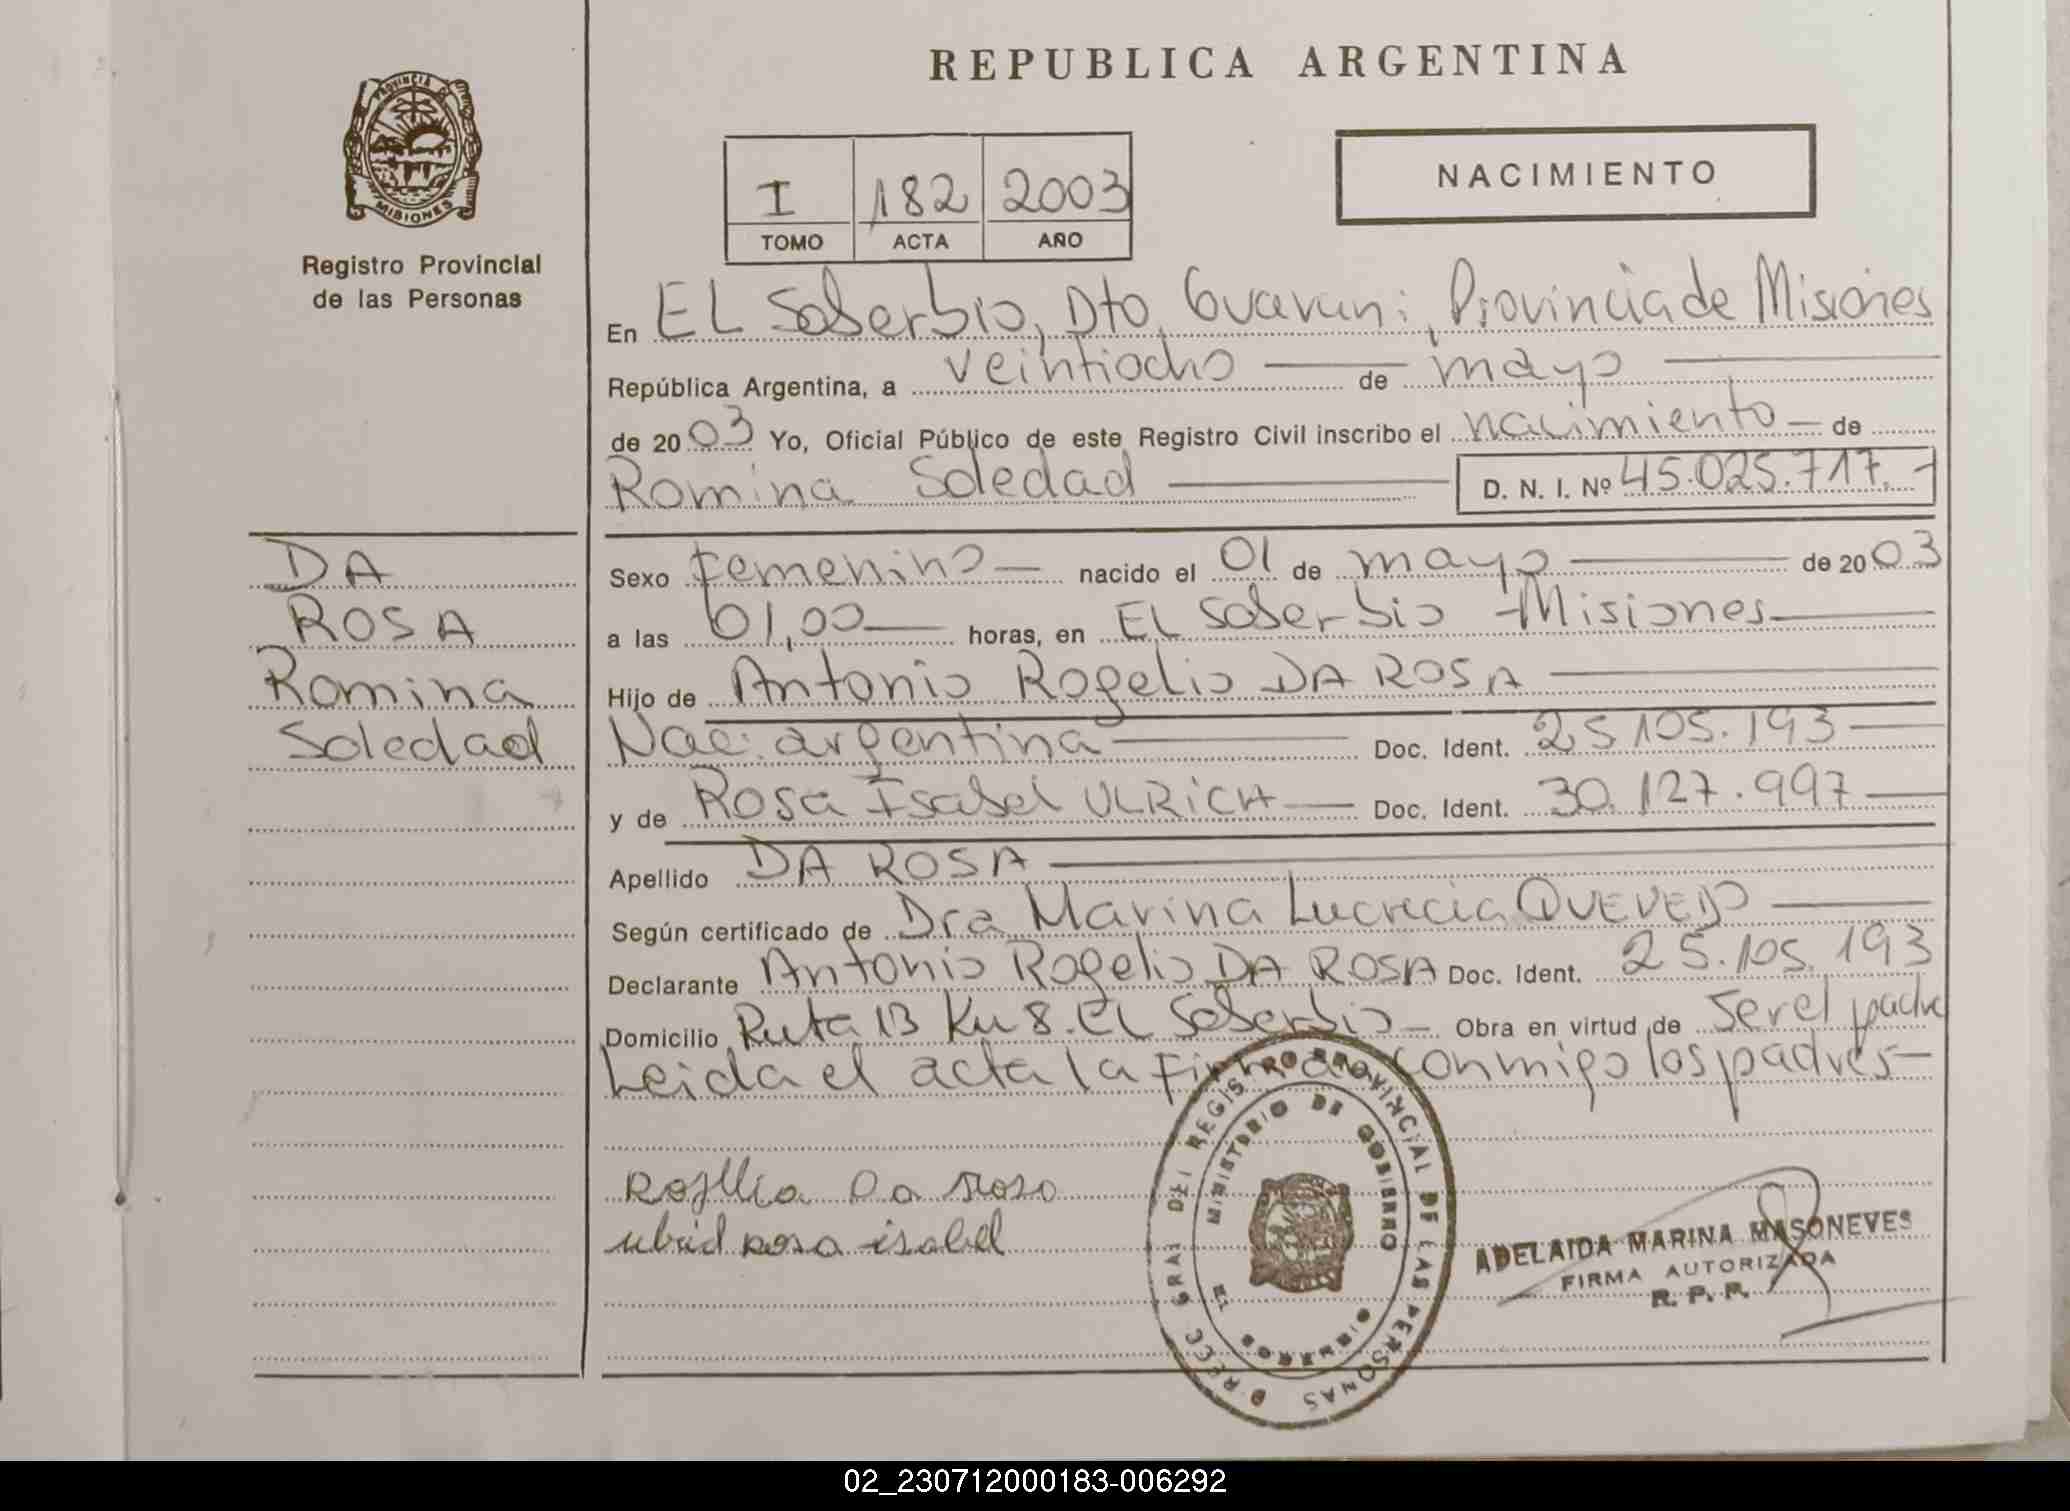 REPUBLICA ARGENTINA
PROVINCIA DE MISIONES
Registro Provincial
de las Personas
I 182 2003
TOMO ACTA AÑO
NACIMIENTO
En EL Soberbio, Dto, Guarani, Provincia de Misiones
República Argentina, a veintiocho de mayo
de 2003 Yo, Oficial Público de este Registro Civil inscribo el nacimiento de
Romina Soledad D. N. I. Nº 45.025.717.-
DA
ROSA
Romina
Soledad
Sexo femenino nacido el 01 de mayo de 2003
a las 01,00 horas, en EL Soberbio - Misiones
Hijo de Antonio Rogelio DA ROSA
Nac: argentina Doc. Ident. 25.105.193
y de Rosa Isabel ULRICH Doc. Ident. 30.127.997
Apellido DA ROSA
Según certificado de Dra Marina Lucrecia QUEVEDO
Declarante Antonio Rogelio DA ROSA Doc. Ident. 25.105.193
Domicilio Ruta 13 Km 8. EL Soberbio Obra en virtud de ser el padre
Leida el acta la firman conmigo los padres
Da Rosa
rosa isabel
DIREC GRAL DEL REGISTRO PROVINCIAL DE LAS PERSONAS
MINISTERIO DE GOBIERNO
ADELAIDA MARINA MASONEVES
FIRMA AUTORIZADA
R. P. P.
02_230712000183-006292